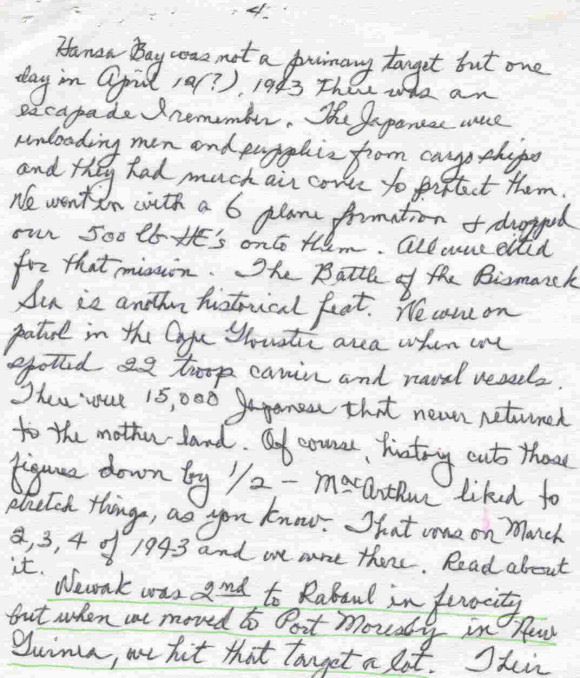 4.
Hansa Bay was not a primary target but one
day in April 12(?), 1943 there was an
escapade I remember. The Japanese were
unloading men and supplies from cargo ships
and they had much air cover to protect them.
We went in with a 6 plane formation & dropped
our 500 lb HE's onto them. All were cited
for that mission. The Battle of the Bismarck
Sea is another historical feat. We were on
patrol in the Cape Glouster area when we
spotted 22 troop carrier and naval vessels.
There were 15,000 Japanese that never returned
to the mother land. Of course, history cuts those
figures down by 1/2 - MacArthur liked to
stretch things, as you know. That was on March
2, 3, 4 of 1943 and we were there. Read about
it.
Wewak was 2nd to Rabaul in ferocity
but when we moved to Port Moresby in New
Guinea, we hit that target a lot. Their